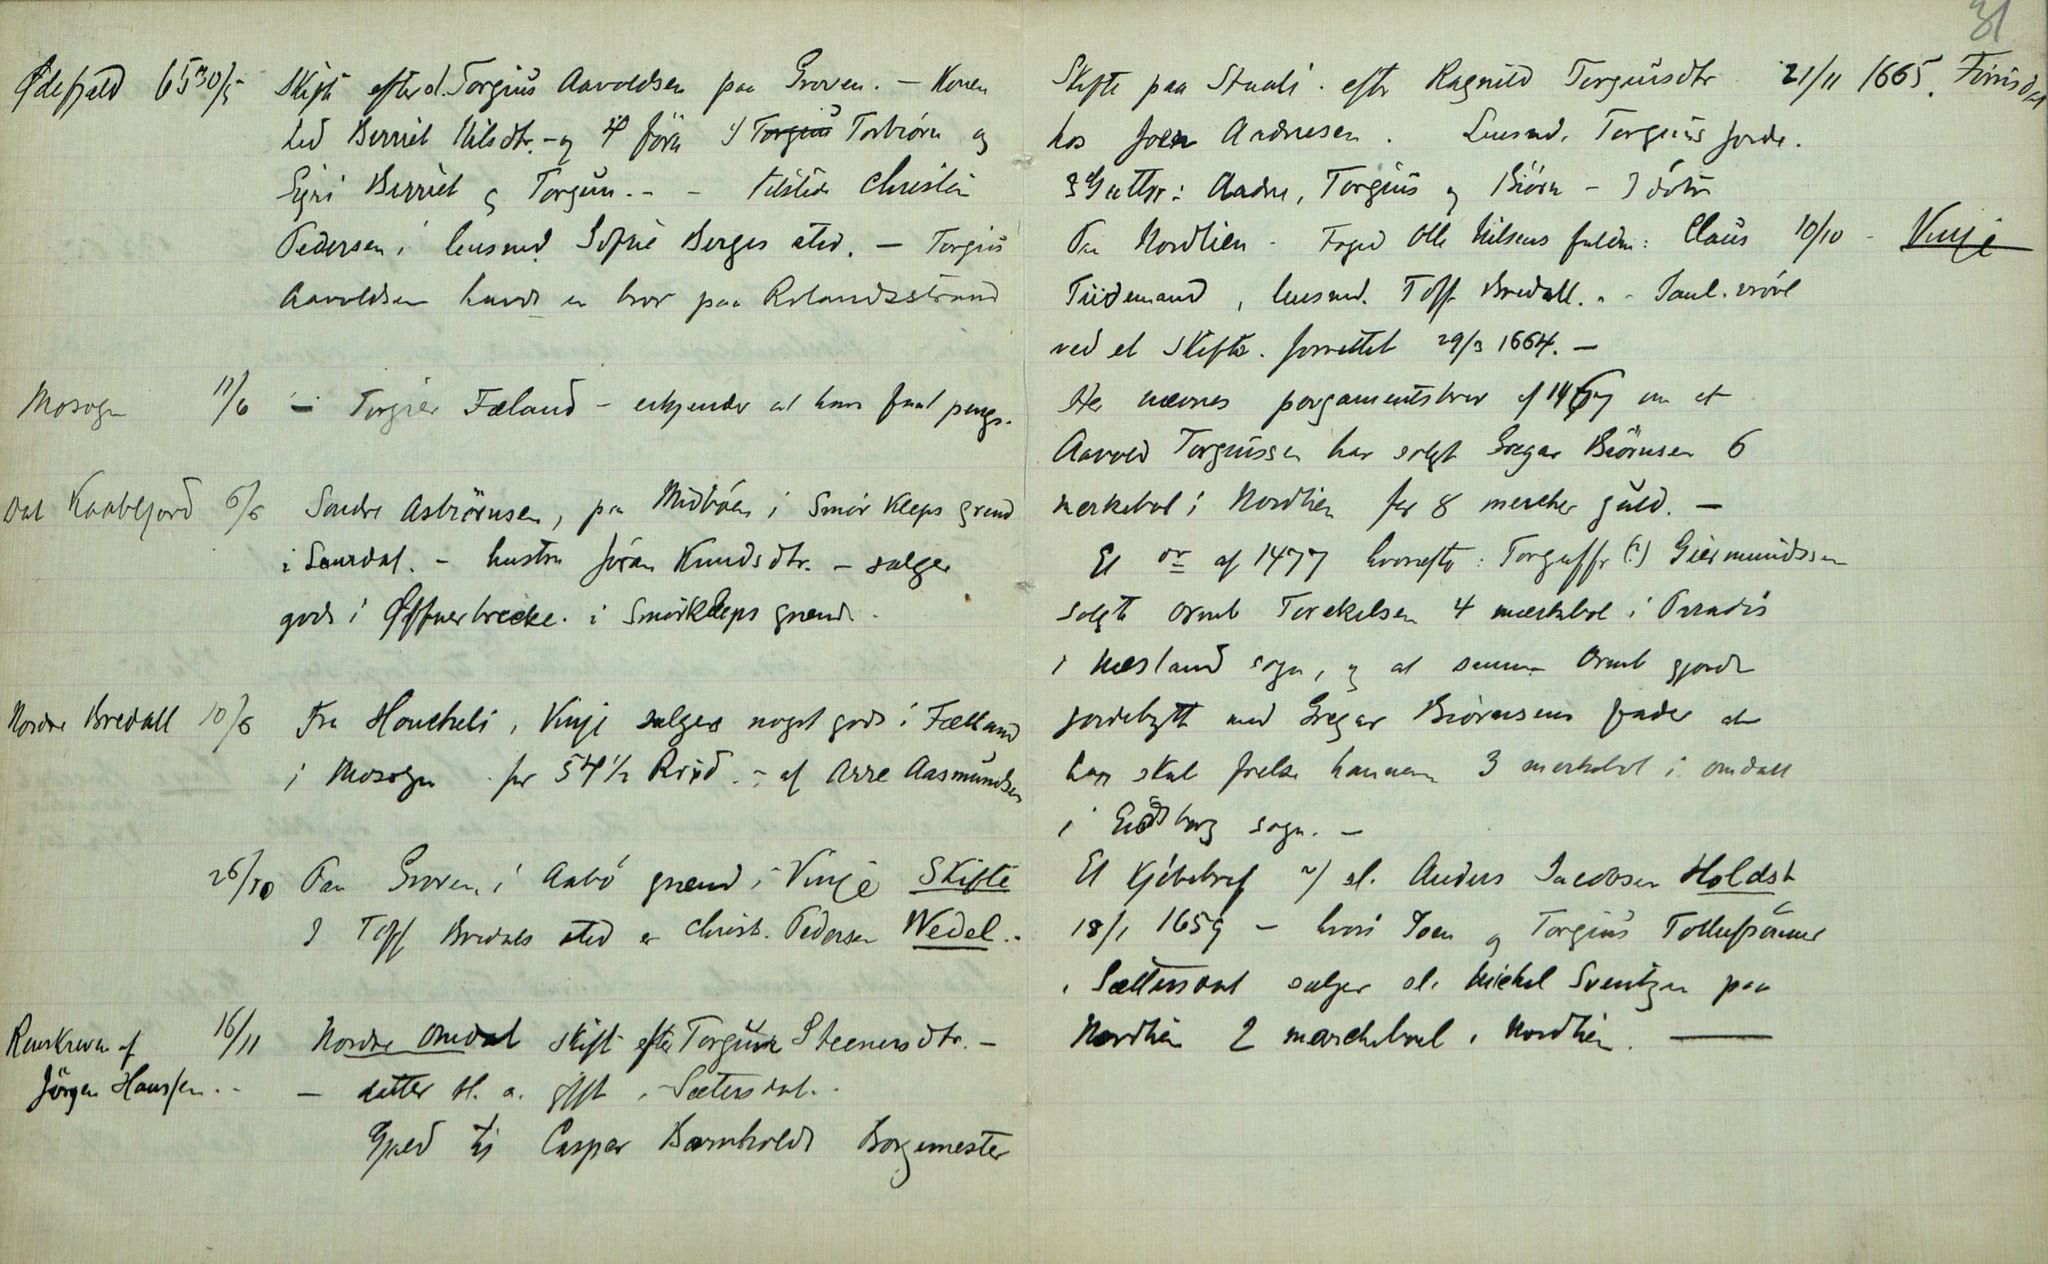 31
Ødefjeld 65 30/5 Skift efter sl. Torgius Aavoldsen paa Groven. – Konen
hed Berriet Nilsdtr. – og 4 Torgius Torbiørn og
Egri Berriet og Torgun. – – tilstede Christen
Pedersen i lensmd. Sofrie Berges sted. – Torgius
Aavoldsen havde en bror paa Rolandsstrand
Mosogn 11/6 – Torgier Fæland – erkjender at have faat penge.
Dal Kaabfjord 6/6 Sondre Asbiörnsen, paa Midböen i Smör Kleps grend
i Saurdal. – hustru Jöran Knudsdtr. – sælger
gods i Øffuerbrecke. i Smörkleps grend.
Nordre Bredall 10/6 Fra Houcheli, Vinje sælges noget gods i Fælland
i Mosogn for 54 1/2 Rixd. – af Arre Aasmundsen
26/10 Paa Groven i Aabö grend i Vinje Skifte
I Toff Bredals sted er Christ. Pedersen Wedel.
Renskreven af 16/11 Nordre Omdal skift efter Torgun Steenersdtr. –
Jörgen Hanssen. – – datter bl. a. gift i Sætersdal.
Gjæld til Casper Barnholdt Borgemester
Skifte paa Staali. efter Ragnild Torgiusdtr 21/11 1665. Förrisdal
hos Joen Andresen. Lensmd. Torgius Jorde.
3 Gutter: Aadne, Torgius og Biörn – 3 dötre
Paa Nordlien – Foged Olle Nilsens fuldm: Claus 10/10 – Vinje
Tiidemand, lensmd. Toff Bredall. – – Saml. vrövl
ved et skifte. forrettet 29/3 1664. –
Her nævnes pergamentsbrev af 1467 om at
Aavold Torgiussen har solgt Gregar Biörnsen 6
merkebol i Nordlien for 8 mercher guld. –
Et do af 1477 hvorefter: Torguffr (?) Giermundssen
solgte Ormb Torckelsen 4 merkebol i Paradis
i Nesland sogn, og at samme Ormb gjorde
jordebytte med Gregar Biörnsens fader at
han skal frelse hannem 3 merkebol i Omdall
i Eidsborg sogn. –
Et Kjöbebref af sl. Anders Jacobsen Holdst
18/1 1659 – hvori Joen og Torgius Tollufsönner
i Sættersdal sælger sl. Michel Sventzen paa
Nordlien 2 marchebol i Nordlien. –